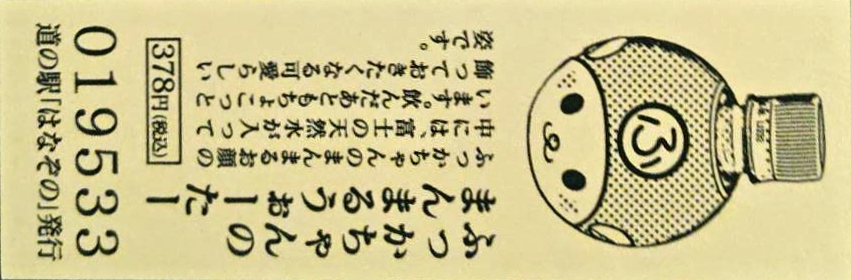 ふ
ふっかちゃんの
まんまるうぉーたー
ふっかちゃんのまんまるお顔の
中には、富士の天然水が入って
います。飲んだあともちょこっと
飾っておきたくなる可愛らしい
姿です。
378円(税込)
019533
道の駅「はなぞの」発行